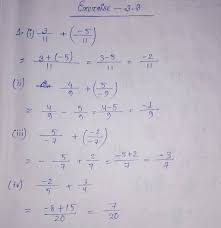 Exercise - 3.2
1. (i) 3/11 + (-5/11)
= 3+(-5)/11 = 3-5/11 = -2/11
(ii) 4/9 + (5/-9)
= 4/9 - 5/9 = 4-5/9 = -1/9
(iii) 5/-7 + (-2/-7)
= -5/7 + 2/7 = -5+2/7 = -3/7
(iv) -2/5 + 3/4
= -8+15/20 = 7/20